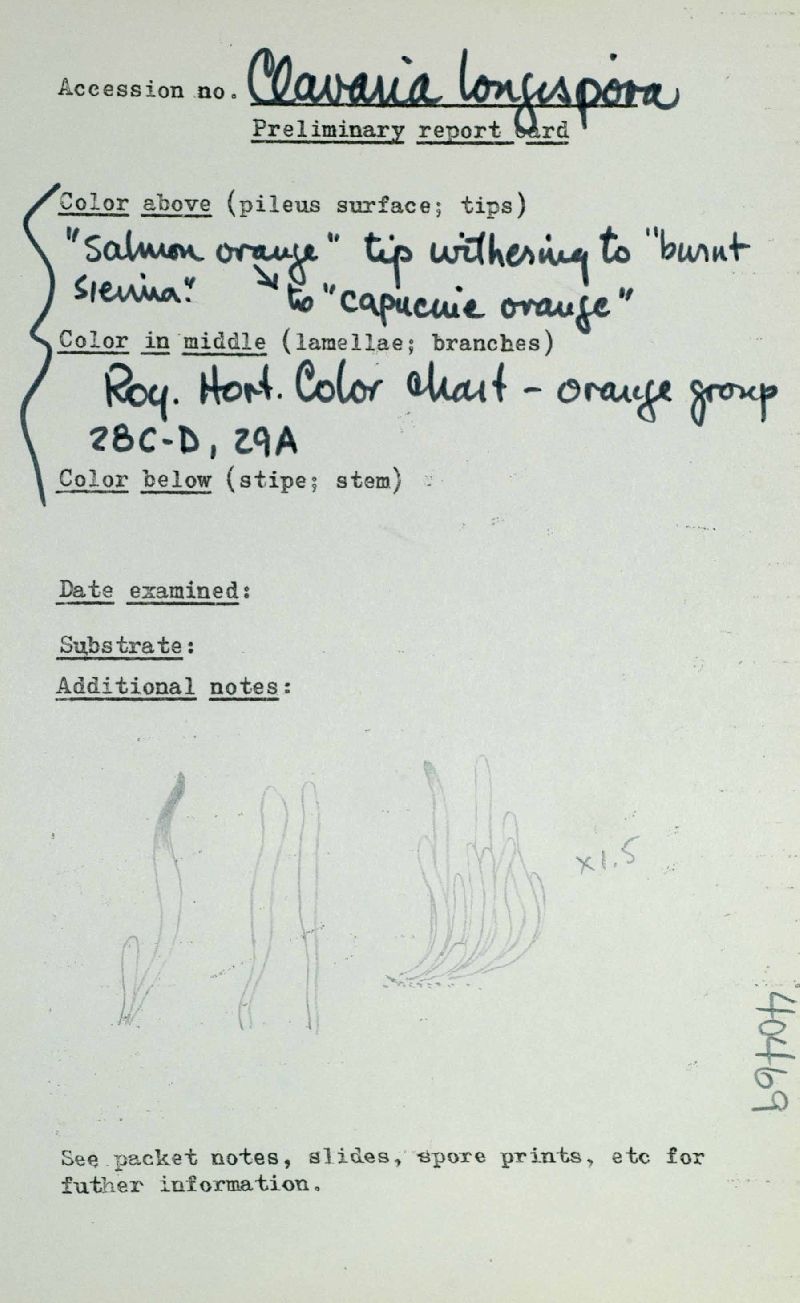 Accession no. Clavaria longispora
Preliminary report card
Color above (pileus surface; tips)
"Salmon orange" tip withering to "burnt
Sienna". to "capucine orange"
Color in middle (lamellae; branches)
Roy. Hort. Color Chart - orange group
28C-D, 29A
Color below (stipe; stem)
Date examined:
Substrate:
Additional notes:
x1.5
40469
See packet notes, slides, spore prints, etc for
futher information.